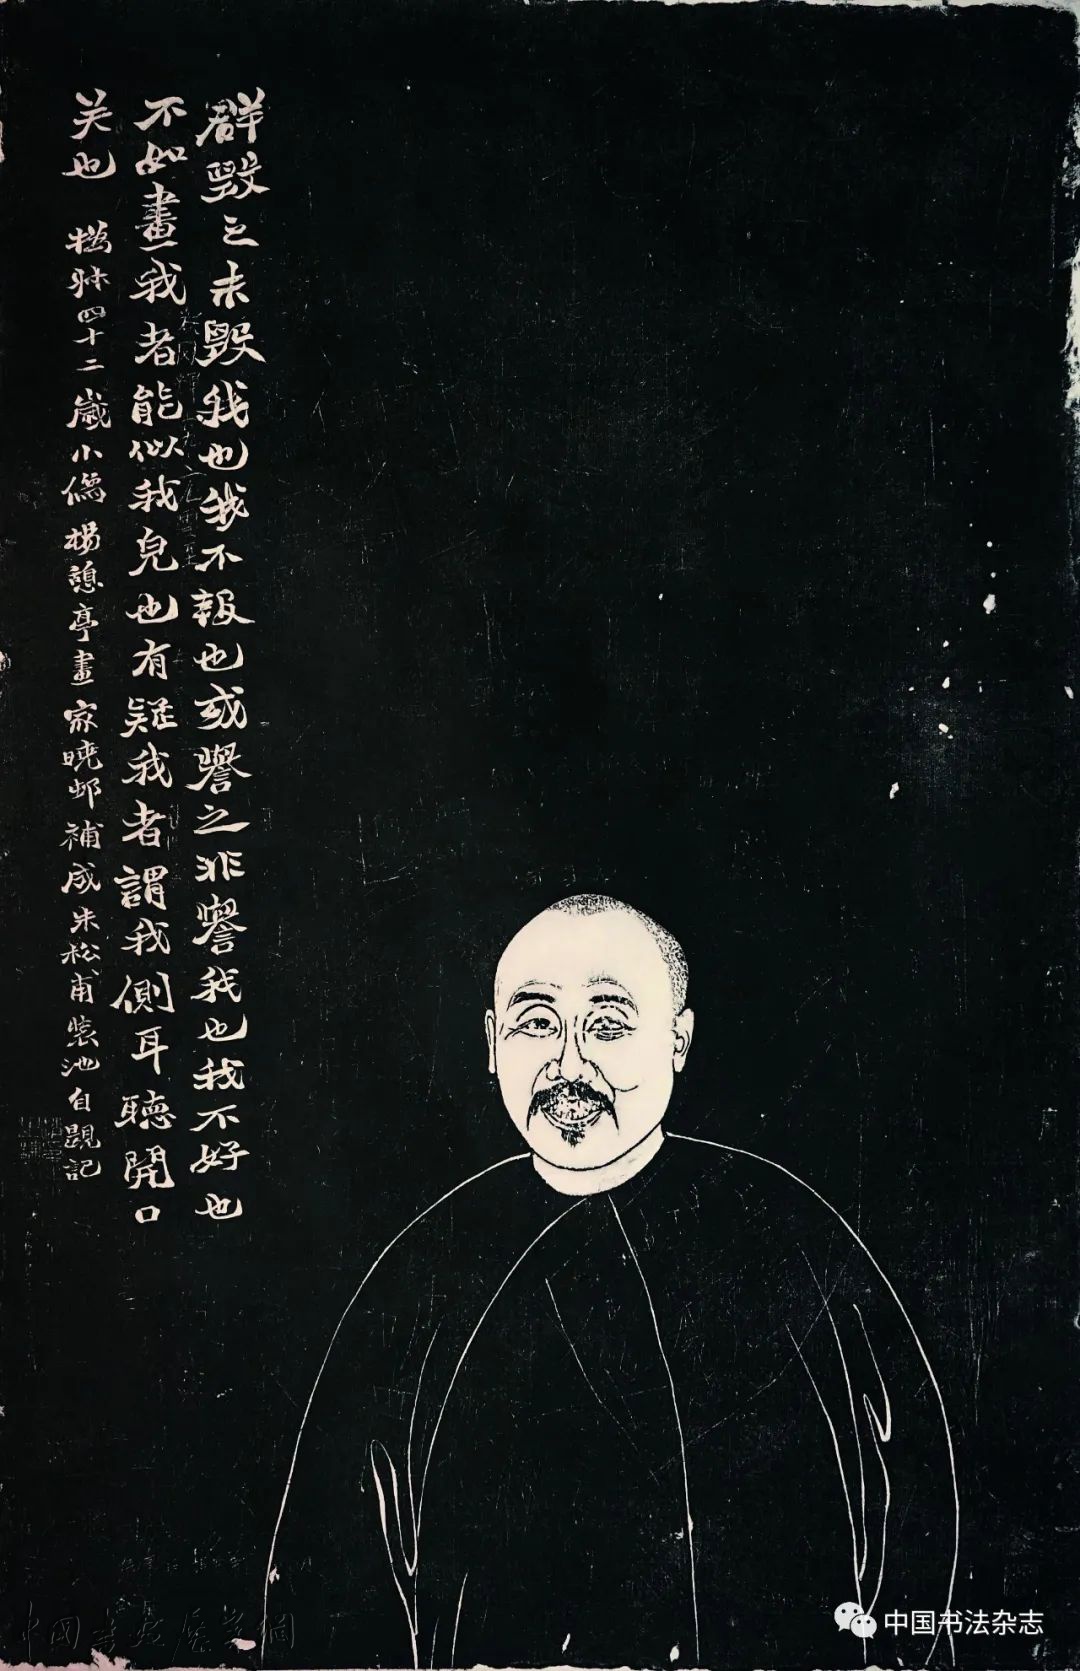 群毀之未毀我也我不報也或譽之非譽我也我不好也
不如畫我者能似我皃也有疑我者謂我側耳聽開口
关也
撝叔四十二歲小像楊憩亭畫家曉邨補成朱松甫裝池自題記
中国书法杂志